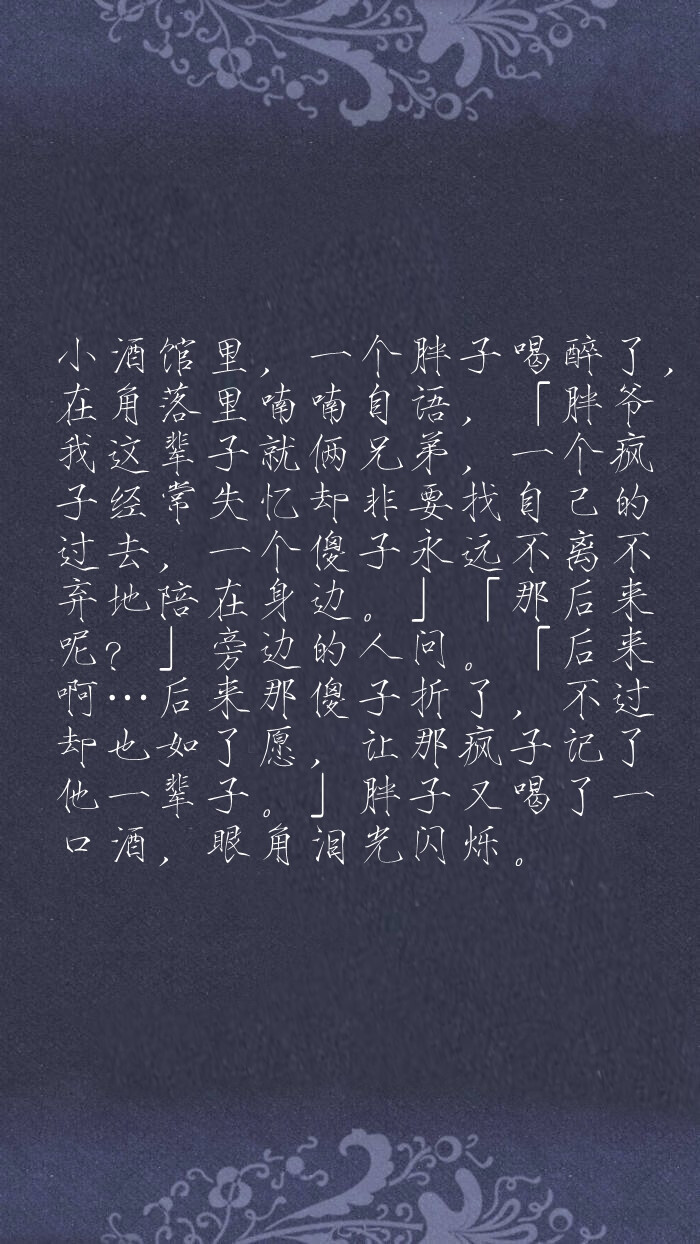 小酒馆里，一个胖子喝醉了，
在角落里喃喃自语，「胖爷
我这辈子就俩兄弟，一个疯
子经常失忆却非要找自己的
过去，一个傻子永远不离不
弃地陪在身边。」「那后来
呢？」旁边的人问。「后来
啊…后来那傻子折了，不过
却也如了愿，让那疯子记了
他一辈子。」胖子又喝了一
口酒，眼角泪光闪烁。